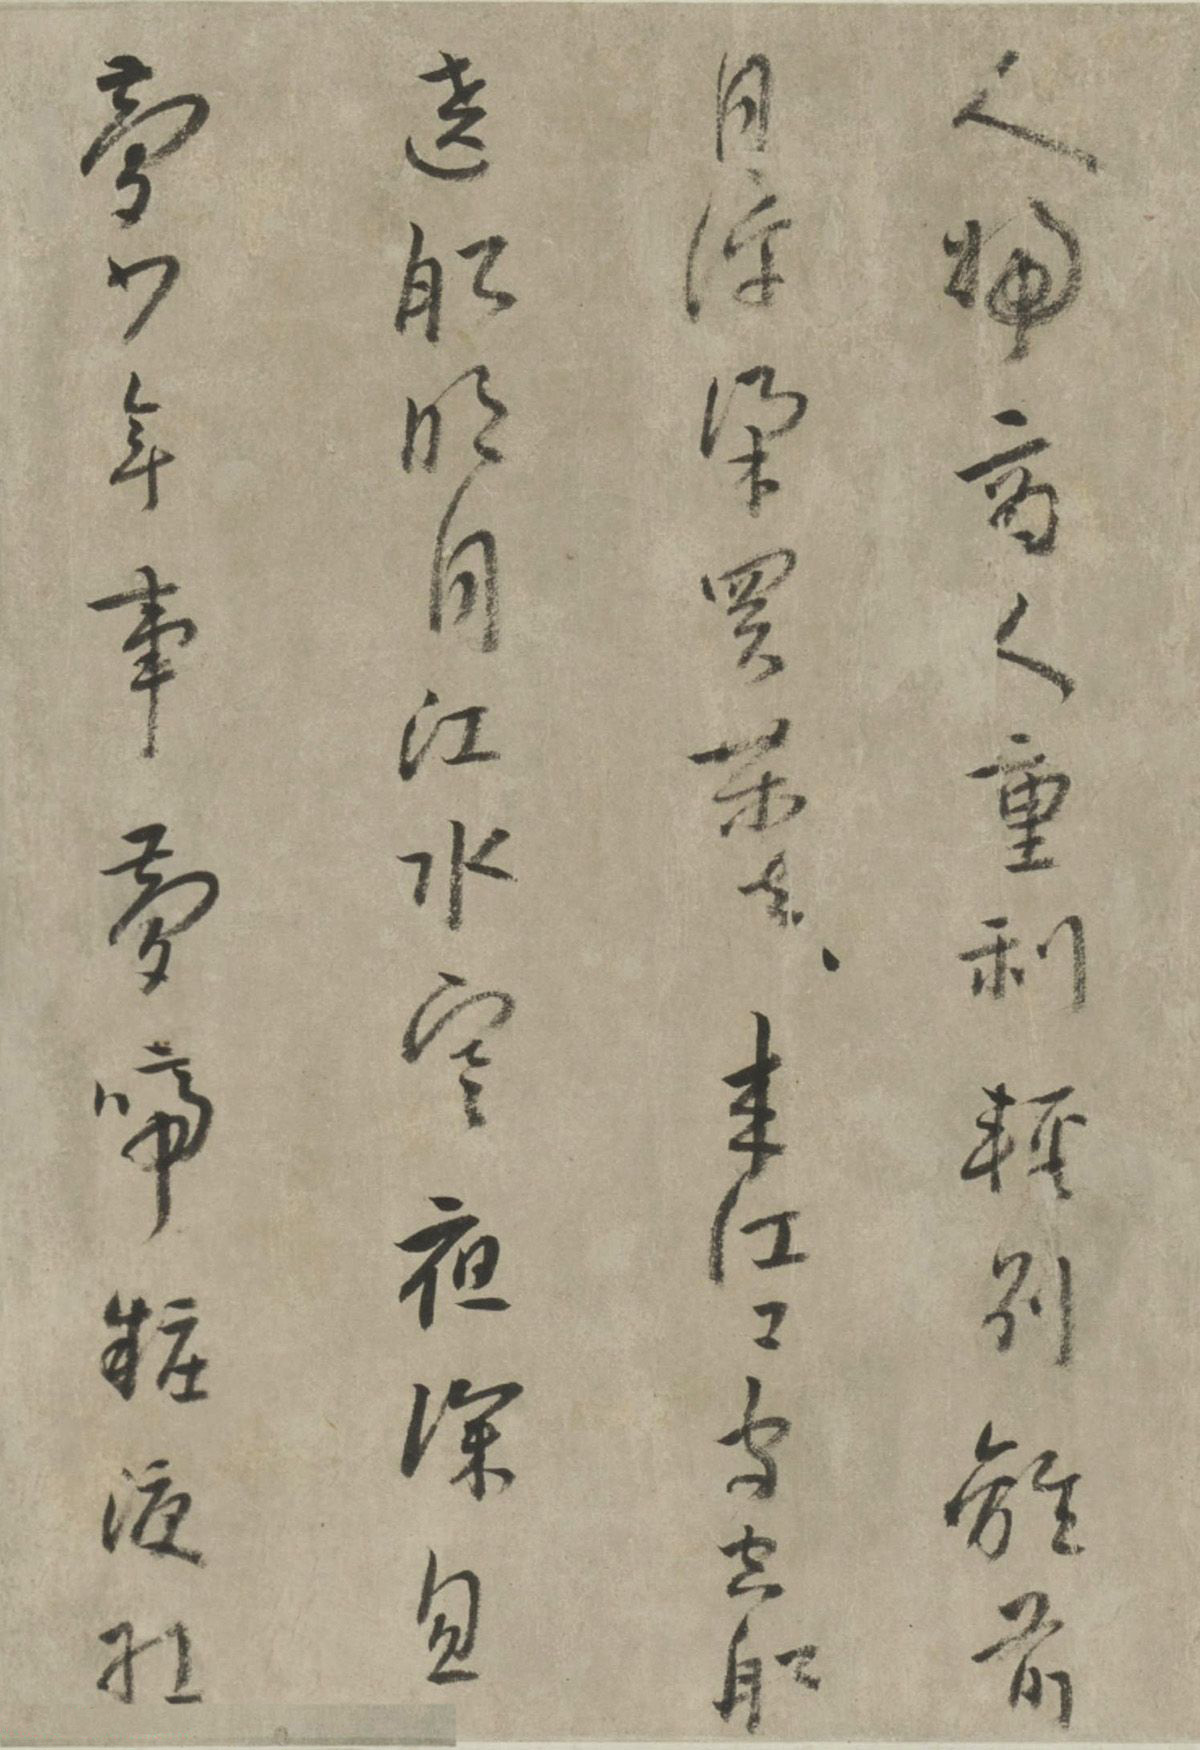 人婦商人重利輕別離前
月浮梁買茶去〻來江口守空船
遶船明月江水寒夜深忽
夢少年事夢啼粧淚紅